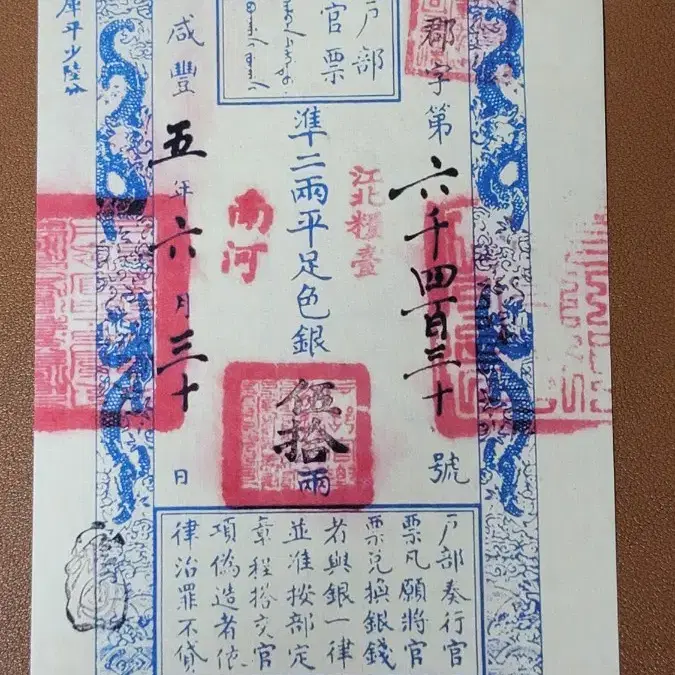 户部
官票
郡字第六千四百三十號
江北糧臺
準二兩平足色銀伍拾兩
南河
咸豐五年六月三十日
庫平少陸分
户部奏行官
票凡願將官
票兌換銀錢
者與銀一律
並准按部定
章程搭交官
項偽造者依
律治罪不貸